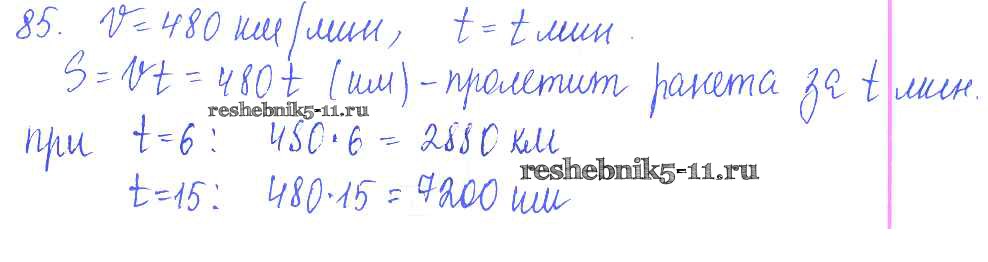 85. V = 480 км/мин, t = t мин.
S = Vt = 480t (км) - пролетит ракета за t мин.
reshebnik5-11.ru
при t=6: 480·6 = 2880 км
reshebnik5-11.ru
t=15: 480·15 = 7200 км